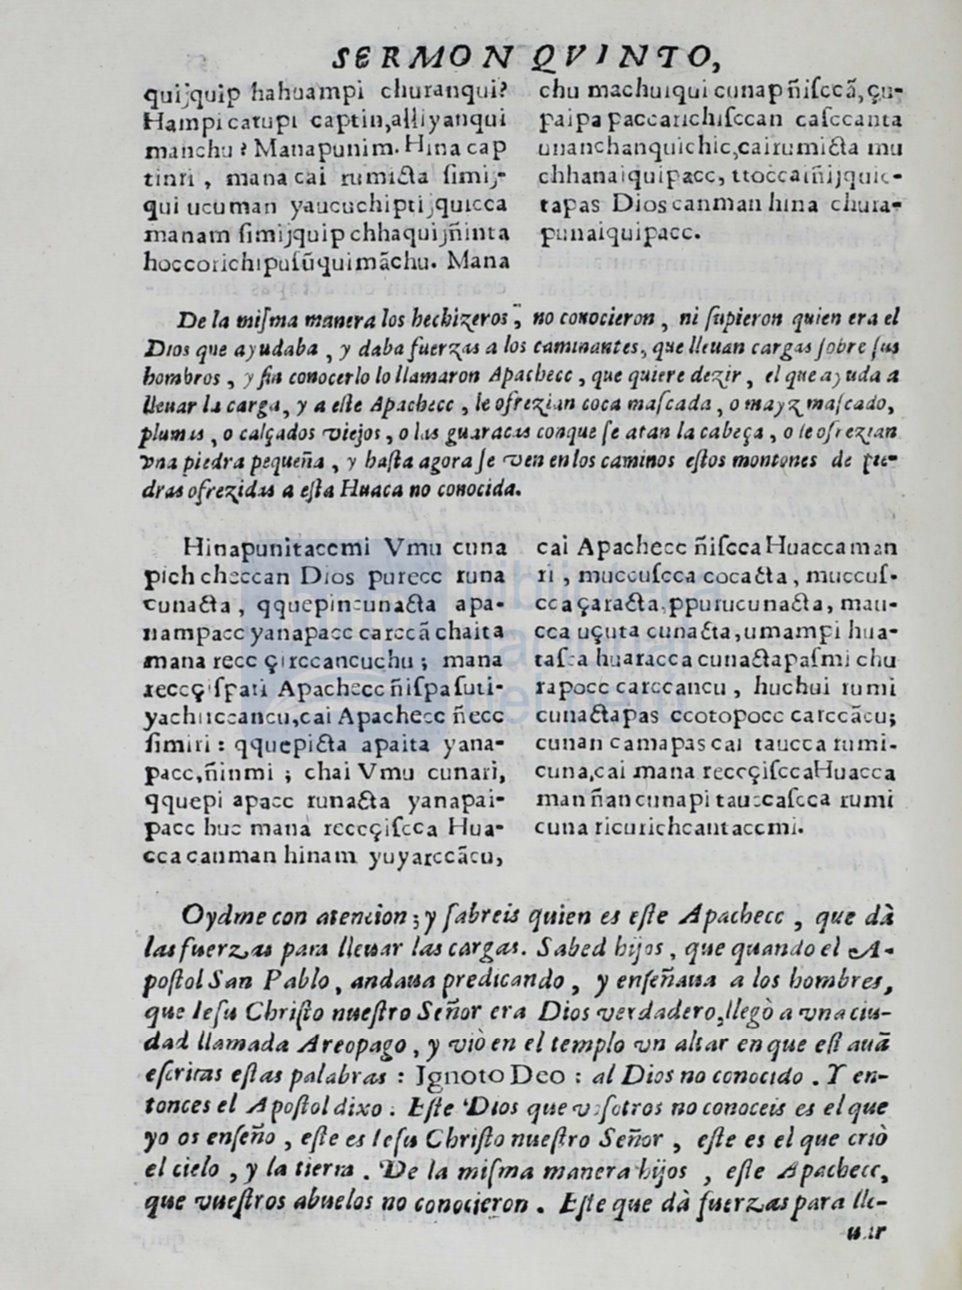 SERMON QVINTO,
quijquip hahuampi churanqui?
Hampicatupi captin,alliyanqui
manchu? Manapunim. Hina cap
tinri, mana cai rumicta ſimij-
qui ucuman yaucuchiptijquicca
manam ſimijquip chhaquijñinta
hoccorichipuſũquimãchu. Mana
chu machuiquicunap ñiſccã,çu-
paipa paccarichiſccan caſccanta
unanchanquichic,cairumicta mu
chhanaiquipacc, ttoccaiñijquic-
tapas Dios canman hina chura-
punaiquipacc.
De la miſma manera los hechizeros, no conocieron, ni ſupieron quien era el
Dios que ayudaba, y daba fuerzas a los caminantes, que lleuan cargas ſobre ſus
hombros, y ſin conocerlo lo llamaron Apachecc, que quiere dezir, el que ayuda a
lleuar la carga, y a eſte Apachecc, le ofrezian coca maſcada, o mayz maſcado,
plumas, o calçados viejos, o las guaracas conque ſe atan la cabeça, o le ofrezian
vna piedra pequeña, y haſta agora ſe ven en los caminos eſtos montones de pie-
dras ofrezidas a eſta Huaca no conocida.
Hinapunitaccmi Vmu cuna
pich checcan Dios purecc runa
cunacta, qquepincunacta apa-
nampacc yanapacc carccã chaita
mana recc çirccancuchu; mana
reccçiſpati Apachecc ñiſpa ſuti-
yachirccancu,cai Apachecc ñecc
ſimiri: qquepicta apaita yana-
pacc,ñinmi; chai Vmu cunari,
qquepi apacc runacta yanapai-
pacc huc mana reccçiſcca Hua-
cca canman hinam yuyarccãcu,
cai Apachecc ñiſcca Huaccaman
ri, muccuſcca cocacta, muccuſ-
cca çaracta,ppurucunacta, mau-
cca uçuta cunacta,umampi hua-
taſcca huaracca cunactapaſmi chu
rapocc carccancu, huchui rumi
cunactapas ccotopocc carccãcu;
cunan camapas cai taucca rumi-
cuna,cai mana reccçiſcca Huacca
man ñancunapi tauccaſcca rumi
cuna ricurichcantaccmi.
Oydme con atencion; y ſabreis quien es eſte Apachecc, que dà
las fuerzas para lleuar las cargas. Sabed hijos, que quando el A-
poſtol San Pablo, andaua predicando, y enſeñaua a los hombres,
que Ieſu Chriſto nueſtro Señor era Dios verdadero,llegò a vna ciu-
dad llamada Areopago, y viò en el templo vn altar en que eſtauã
eſcritas eſtas palabras: Ignoto Deo: al Dios no conocido. Y en-
tonces el Apoſtol dixo. Eſte Dios que voſotros no conoceis es el que
yo os enſeño, eſte es Ieſu Chriſto nueſtro Señor, eſte es el que criò
el cielo, y la tierra. De la miſma manera hijos, eſte Apachecc,
que vueſtros abuelos no conocieron. Eſte que dà fuerzas para lle-
uar